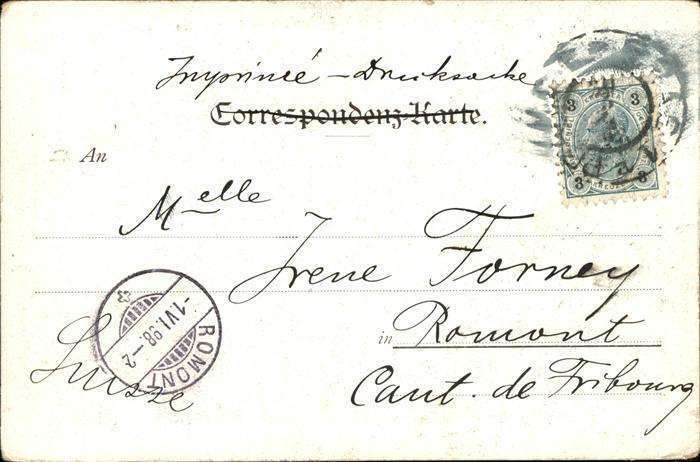 Imprimé – Drucksache
Correspondenz-Karte.
An
Melle
Irene Forney
in Romont
Suisse
Cant. de Fribourg
ROMONT
-1.VI.98.–2
3 3
3 3